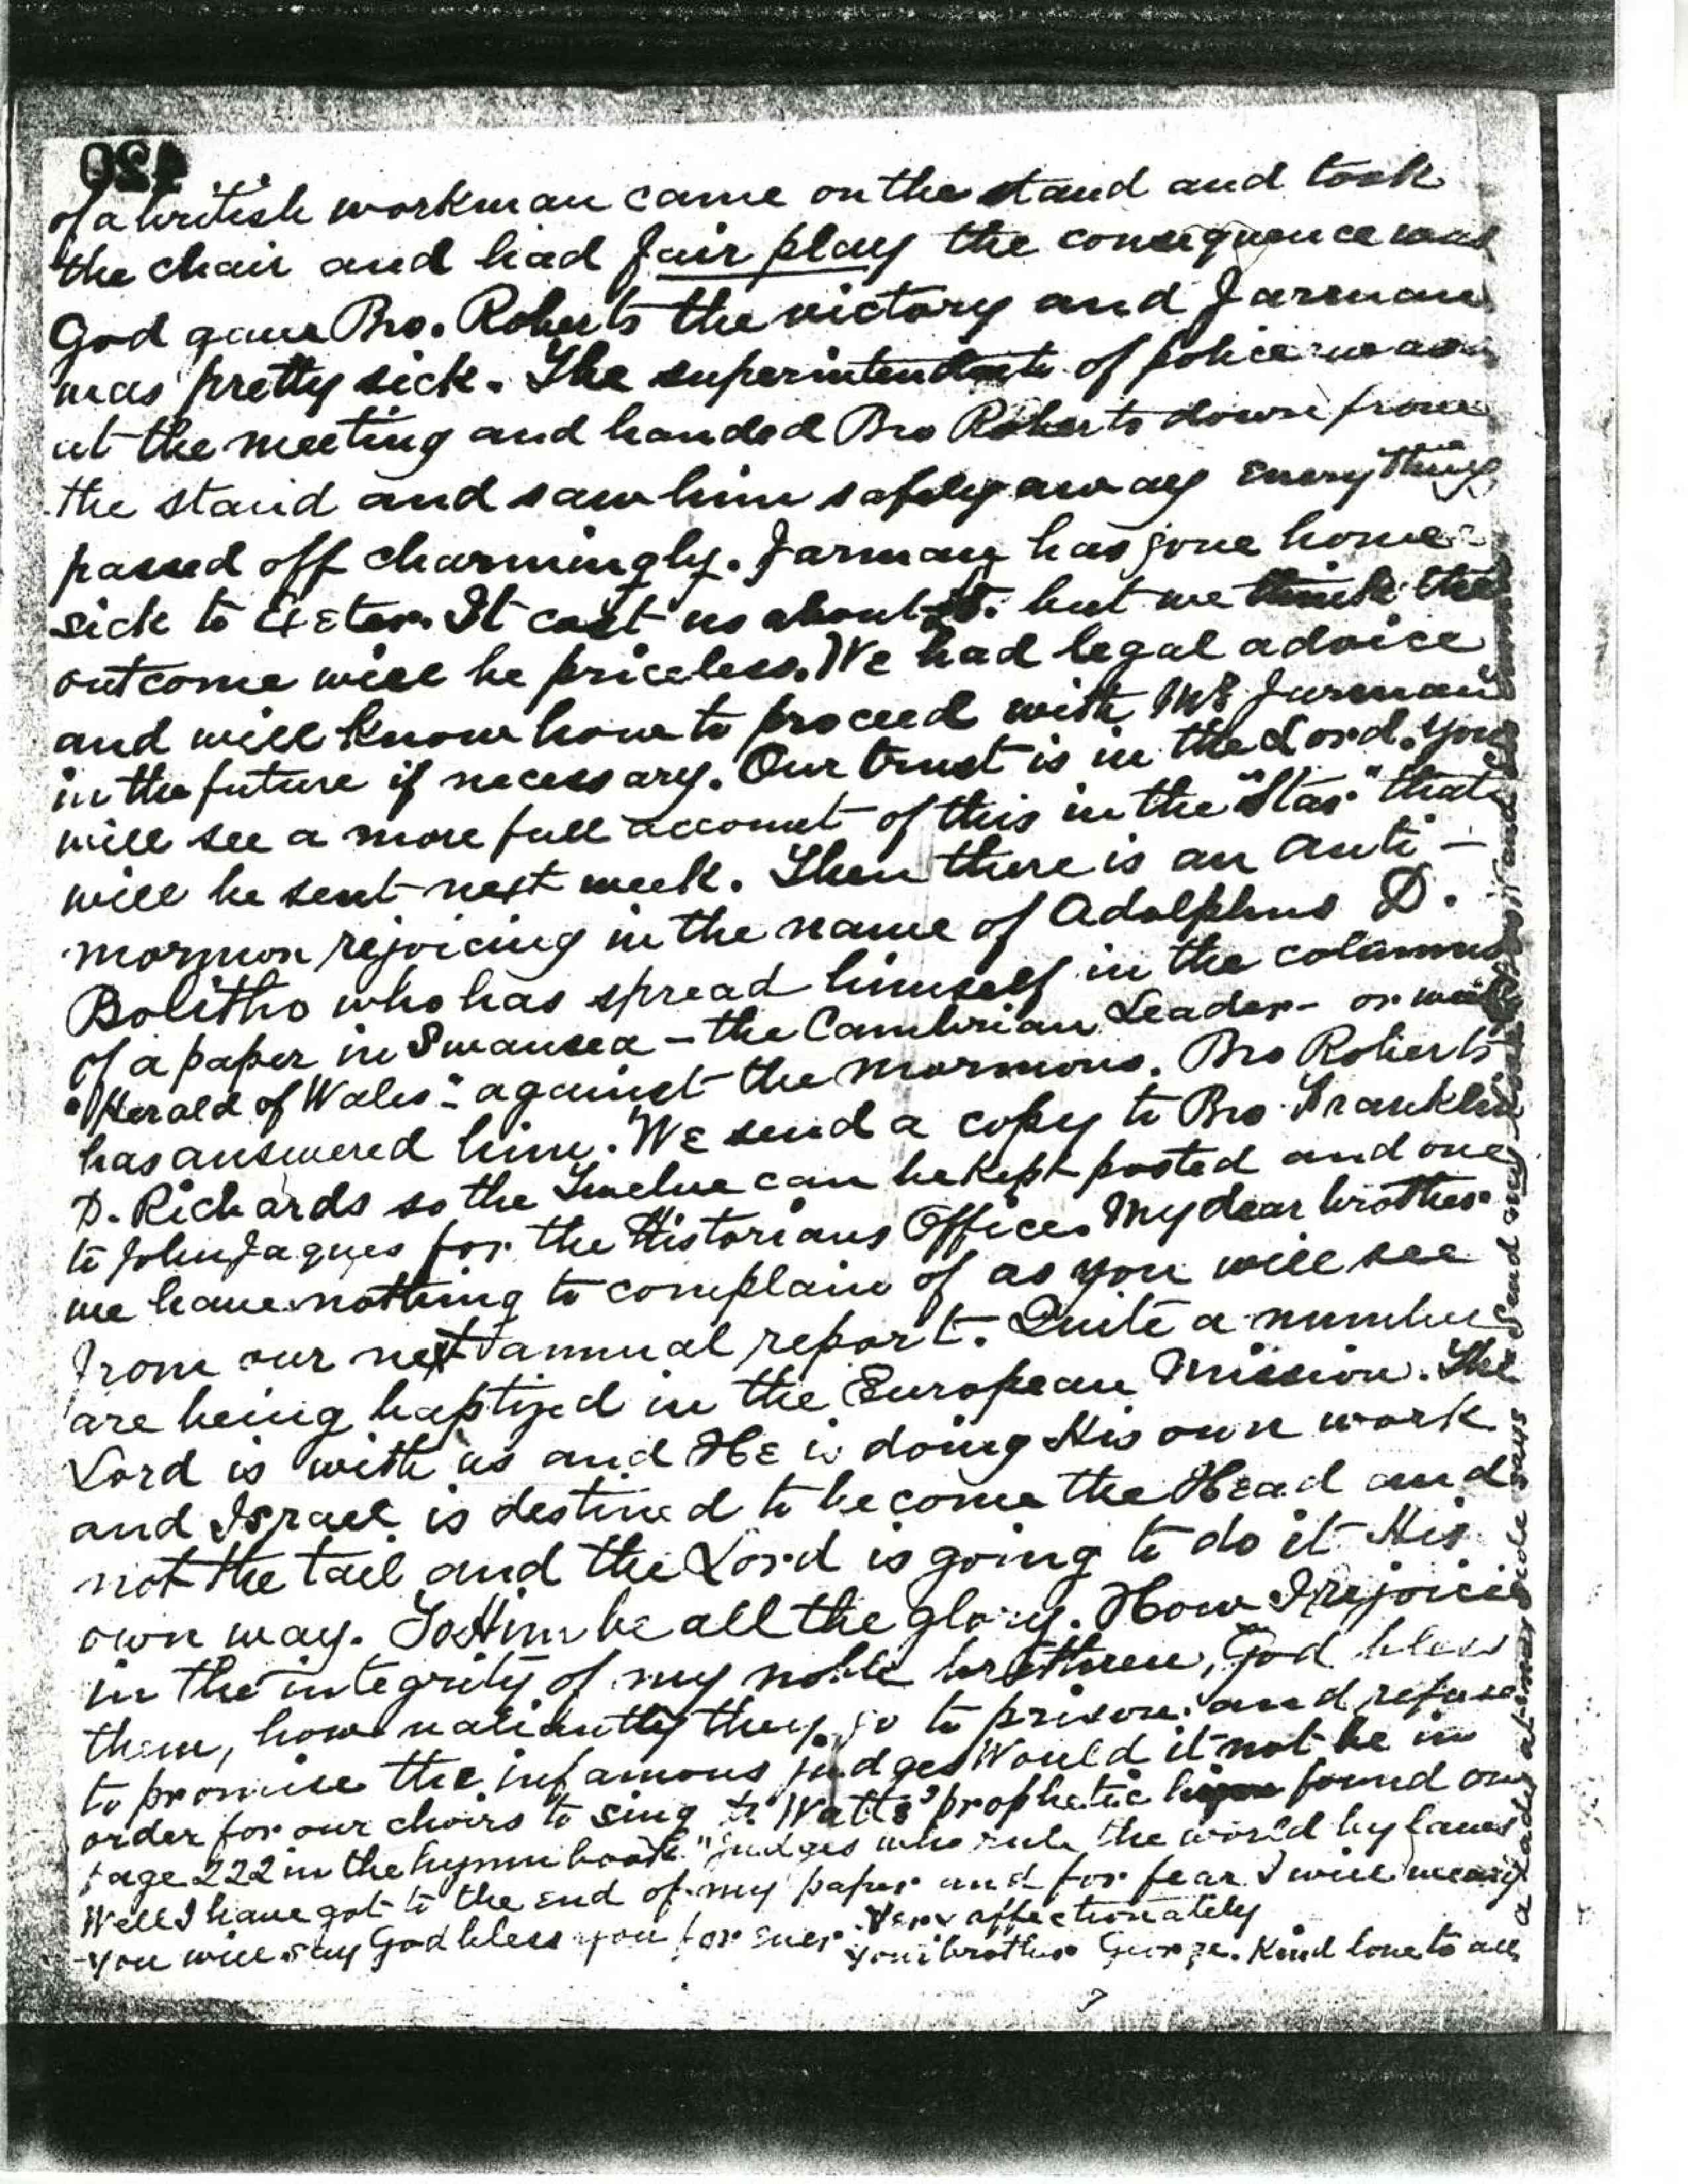 420
of a british workman came on the stand and took
the chair and had fair play the consequence was
God gave Bro. Roberts the victory and Jarman
was pretty sick. The superintendent of police was
at the meeting and handed Bro Roberts down from
the stand and saw him safely away everything
passed off charmingly. Jarman has gone home
sick to Exeter. It cost us about but we think the
outcome will be priceless. We had legal advice
and will know how to proceed with Mr Jarman
in the future if necessary. Our trust is in the Lord. You
will see a more full account of this in the "Star" that
will be sent next week. Then there is an anti-
mormon rejoicing in the name of Adolphus D.
Bolitho who has spread himself in the columns
of a paper in Swansea - the Cambrian Leader - or
"Herald of Wales" - against the mormons. Bro Roberts
has answered him. We send a copy to Bro Franklin
D. Richards so the Twelve can be kept posted and one
to John Jaques for the Historians Office. My dear brother
we have nothing to complain of as you will see
from our next annual report. Quite a number
are being baptized in the European Mission. The
Lord is with us and He is doing His own work
and Israel is destined to become the Head and
not the tail and the Lord is going to do it His
own way. To Him be all the glory. How I rejoice
in the integrity of my noble brethren, God bless
them, how valiantly they go to prison and refuse
to promise the infamous judges Would it not be in
order for our choirs to sing Watts' prophetic found on
page 222 in the hymn book "Judges who rule the world by laws
Well I have got to the end of my paper and for fear I will weary
you will say God bless you for ever Very affectionately
your brother George. Kind love to all